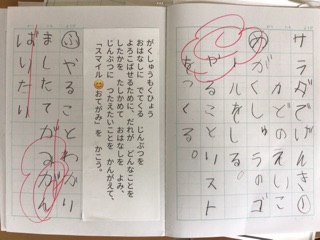 サラダでげんき①
かどのえいこ
めがくしゅうのゴ
ールをしる。
やることリスト
をつくる。
がくしゅうもくひょう
おはなしに でてくる じんぶつを
よろこばせるために、だれが どんなことを
したかを たしかめて おはなしを よみ、
じんぶつに つたえたいことを かんがえて、
「スマイル😊おてがみ」を かこう。
ふやることわかり
ました
ばいたり